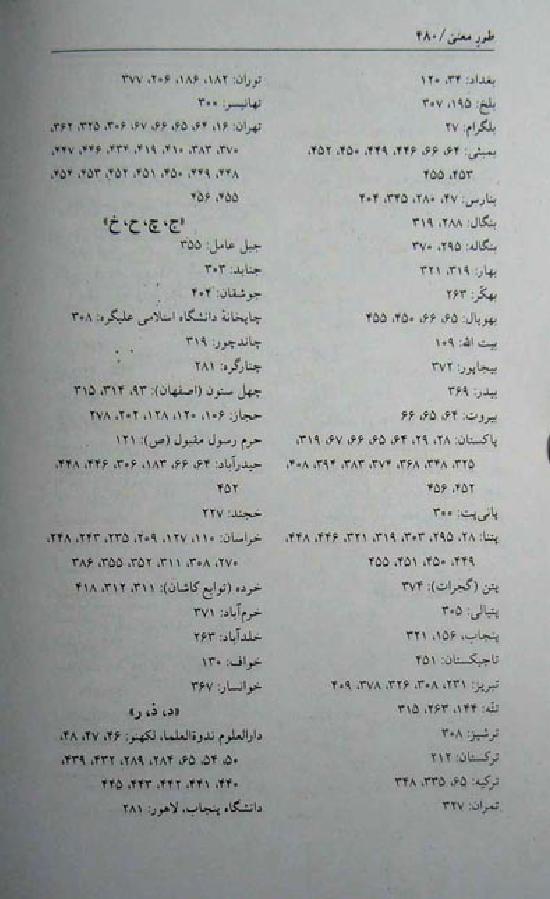 طور معنی / ۴۸۰
بغداد: ۳۴، ۱۲۰
بلخ: ۱۹۵، ۳۰۷
بلگرام: ۲۷
بمبئی: ۶۴، ۶۶، ۴۴۶، ۴۴۹، ۴۵۰، ۴۵۲،
۴۵۳، ۴۵۵
بنارس: ۴۷، ۲۸۰، ۳۴۵، ۴۰۴
بنگال: ۲۸۸، ۳۱۹
بنگاله: ۲۹۵، ۳۷۰
بهار: ۳۱۹، ۳۲۱
بهکّر: ۲۶۳
بهوپال: ۶۵، ۶۶، ۴۵۰، ۴۵۵
بیت الله: ۱۰۹
بیجاپور: ۳۷۲
بیدر: ۳۶۹
بیروت: ۶۴، ۶۵، ۶۶
پاکستان: ۲۸، ۲۹، ۶۴، ۶۵، ۶۶، ۶۷، ۳۱۹،
۳۲۵، ۳۴۸، ۳۶۸، ۳۷۴، ۳۸۳، ۳۹۴، ۴۰۸،
۴۵۲، ۴۵۶
پانی‌پت: ۳۰۰
پتنا: ۲۸، ۲۹۵، ۳۰۳، ۳۱۹، ۳۲۱، ۴۴۶، ۴۴۸،
۴۴۹، ۴۵۰، ۴۵۱، ۴۵۵
پتن (گجرات): ۳۷۴
پتیالی: ۳۰۵
پنجاب، ۱۵۶، ۳۲۱
تاجیکستان: ۴۵۱
تبریز: ۲۳۱، ۳۰۸، ۳۲۶، ۳۷۸، ۴۰۹
تته: ۱۴۴، ۲۶۳، ۳۱۵
ترشیز: ۳۰۸
ترکستان: ۲۱۲
ترکیه: ۶۵، ۳۳۵، ۳۴۸
تمران: ۳۲۷
توران: ۱۸۲، ۱۸۶، ۲۰۶، ۳۷۷
تهانیسر: ۳۰۰
تهران: ۱۶، ۶۴، ۶۵، ۶۶، ۶۷، ۳۰۶، ۳۲۵، ۳۶۲،
۳۷۰، ۳۸۳، ۴۱۰، ۴۱۹، ۴۳۴، ۴۴۶، ۴۴۷،
۴۴۸، ۴۴۹، ۴۵۰، ۴۵۱، ۴۵۲، ۴۵۳، ۴۵۴،
۴۵۵، ۴۵۶
«ج، چ، ح، خ»
جبل عامل: ۳۵۵
جنابد: ۳۰۳
جوشقان: ۴۰۴
چاپخانهٔ دانشگاه اسلامی علیگره: ۳۰۸
چاندچور: ۳۱۹
چنارگره: ۲۸۱
چهل ستون (اصفهان): ۹۳، ۳۱۴، ۳۱۵
حجاز: ۱۰۶، ۱۲۰، ۱۲۸، ۲۰۲، ۲۷۸
حرم رسول مقبول (ص): ۱۲۱
حیدرآباد: ۶۴، ۶۶، ۱۸۳، ۳۰۶، ۴۴۶، ۴۴۸،
۴۵۲
خجند: ۲۲۷
خراسان: ۱۱۰، ۱۲۷، ۲۰۹، ۲۳۵، ۲۴۳، ۲۴۸،
۲۷۰، ۳۰۸، ۳۱۱، ۳۵۲، ۳۵۵، ۳۸۶
خرده (توابع کاشان): ۳۱۱، ۳۱۲، ۴۱۸
خرم‌آباد: ۳۷۱
خلدآباد: ۲۶۳
خواف: ۱۳۰
خوانسار: ۳۶۷
«د، ذ، ر»
دارالعلوم ندوةالعلما، لکهنو: ۴۶، ۴۷، ۴۸،
۵۰، ۵۴، ۶۵، ۲۸۴، ۲۸۹، ۴۳۲، ۴۳۹،
۴۴۰، ۴۴۱، ۴۴۲، ۴۴۳، ۴۴۵
دانشگاه پنجاب، لاهور: ۲۸۱